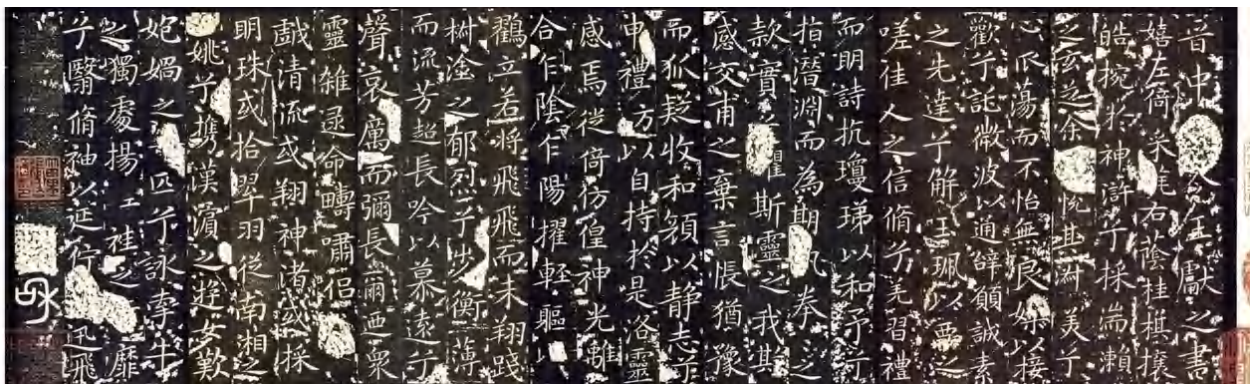 晉中令王獻之書
嬉左倚采旄右蔭桂棋攘
皓捥於神滸兮採湍瀨
之玄芝余悅其淑美兮
心振蕩而不怡無良媒以接
歡兮託微波以通辭願誠素
之先達兮解玉珮以要之
嗟佳人之信脩兮羌習禮
而明詩抗瓊珶以和予兮
指潛淵而為期執拳之
款實懼斯靈之我欺
感交甫之棄言悵猶豫
而狐疑收和顏以靜志兮
申禮方以自持於是洛靈
感焉徙倚彷徨神光離
合乍陰乍陽擢輕軀以
鸖立若將飛飛而未翔踐
椒塗之郁烈兮步衡薄
而流芳超長吟以慕遠兮
聲哀厲而彌長爾迺眾
靈雜遝命疇嘯侶
戲清流或翔神渚或採
明珠或拾翠羽從南湘之
姚兮攜漢濱之遊女歎
匏媧之匹兮詠牽牛
之獨處揚輕袿之靡
兮翳脩袖以延佇迅飛